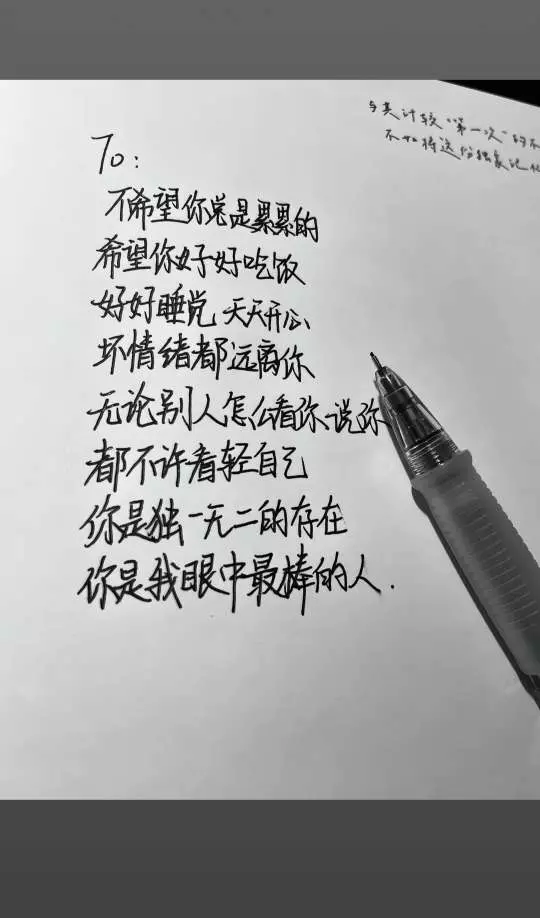 与其计较“第一次”的不
不如将这份独家记忆
To:
不希望你总是累累的
希望你好好吃饭
好好睡觉 天天开心
坏情绪都远离你
无论别人怎么看你、说你
都不许看轻自己
你是独一无二的存在
你是我眼中最棒的人.